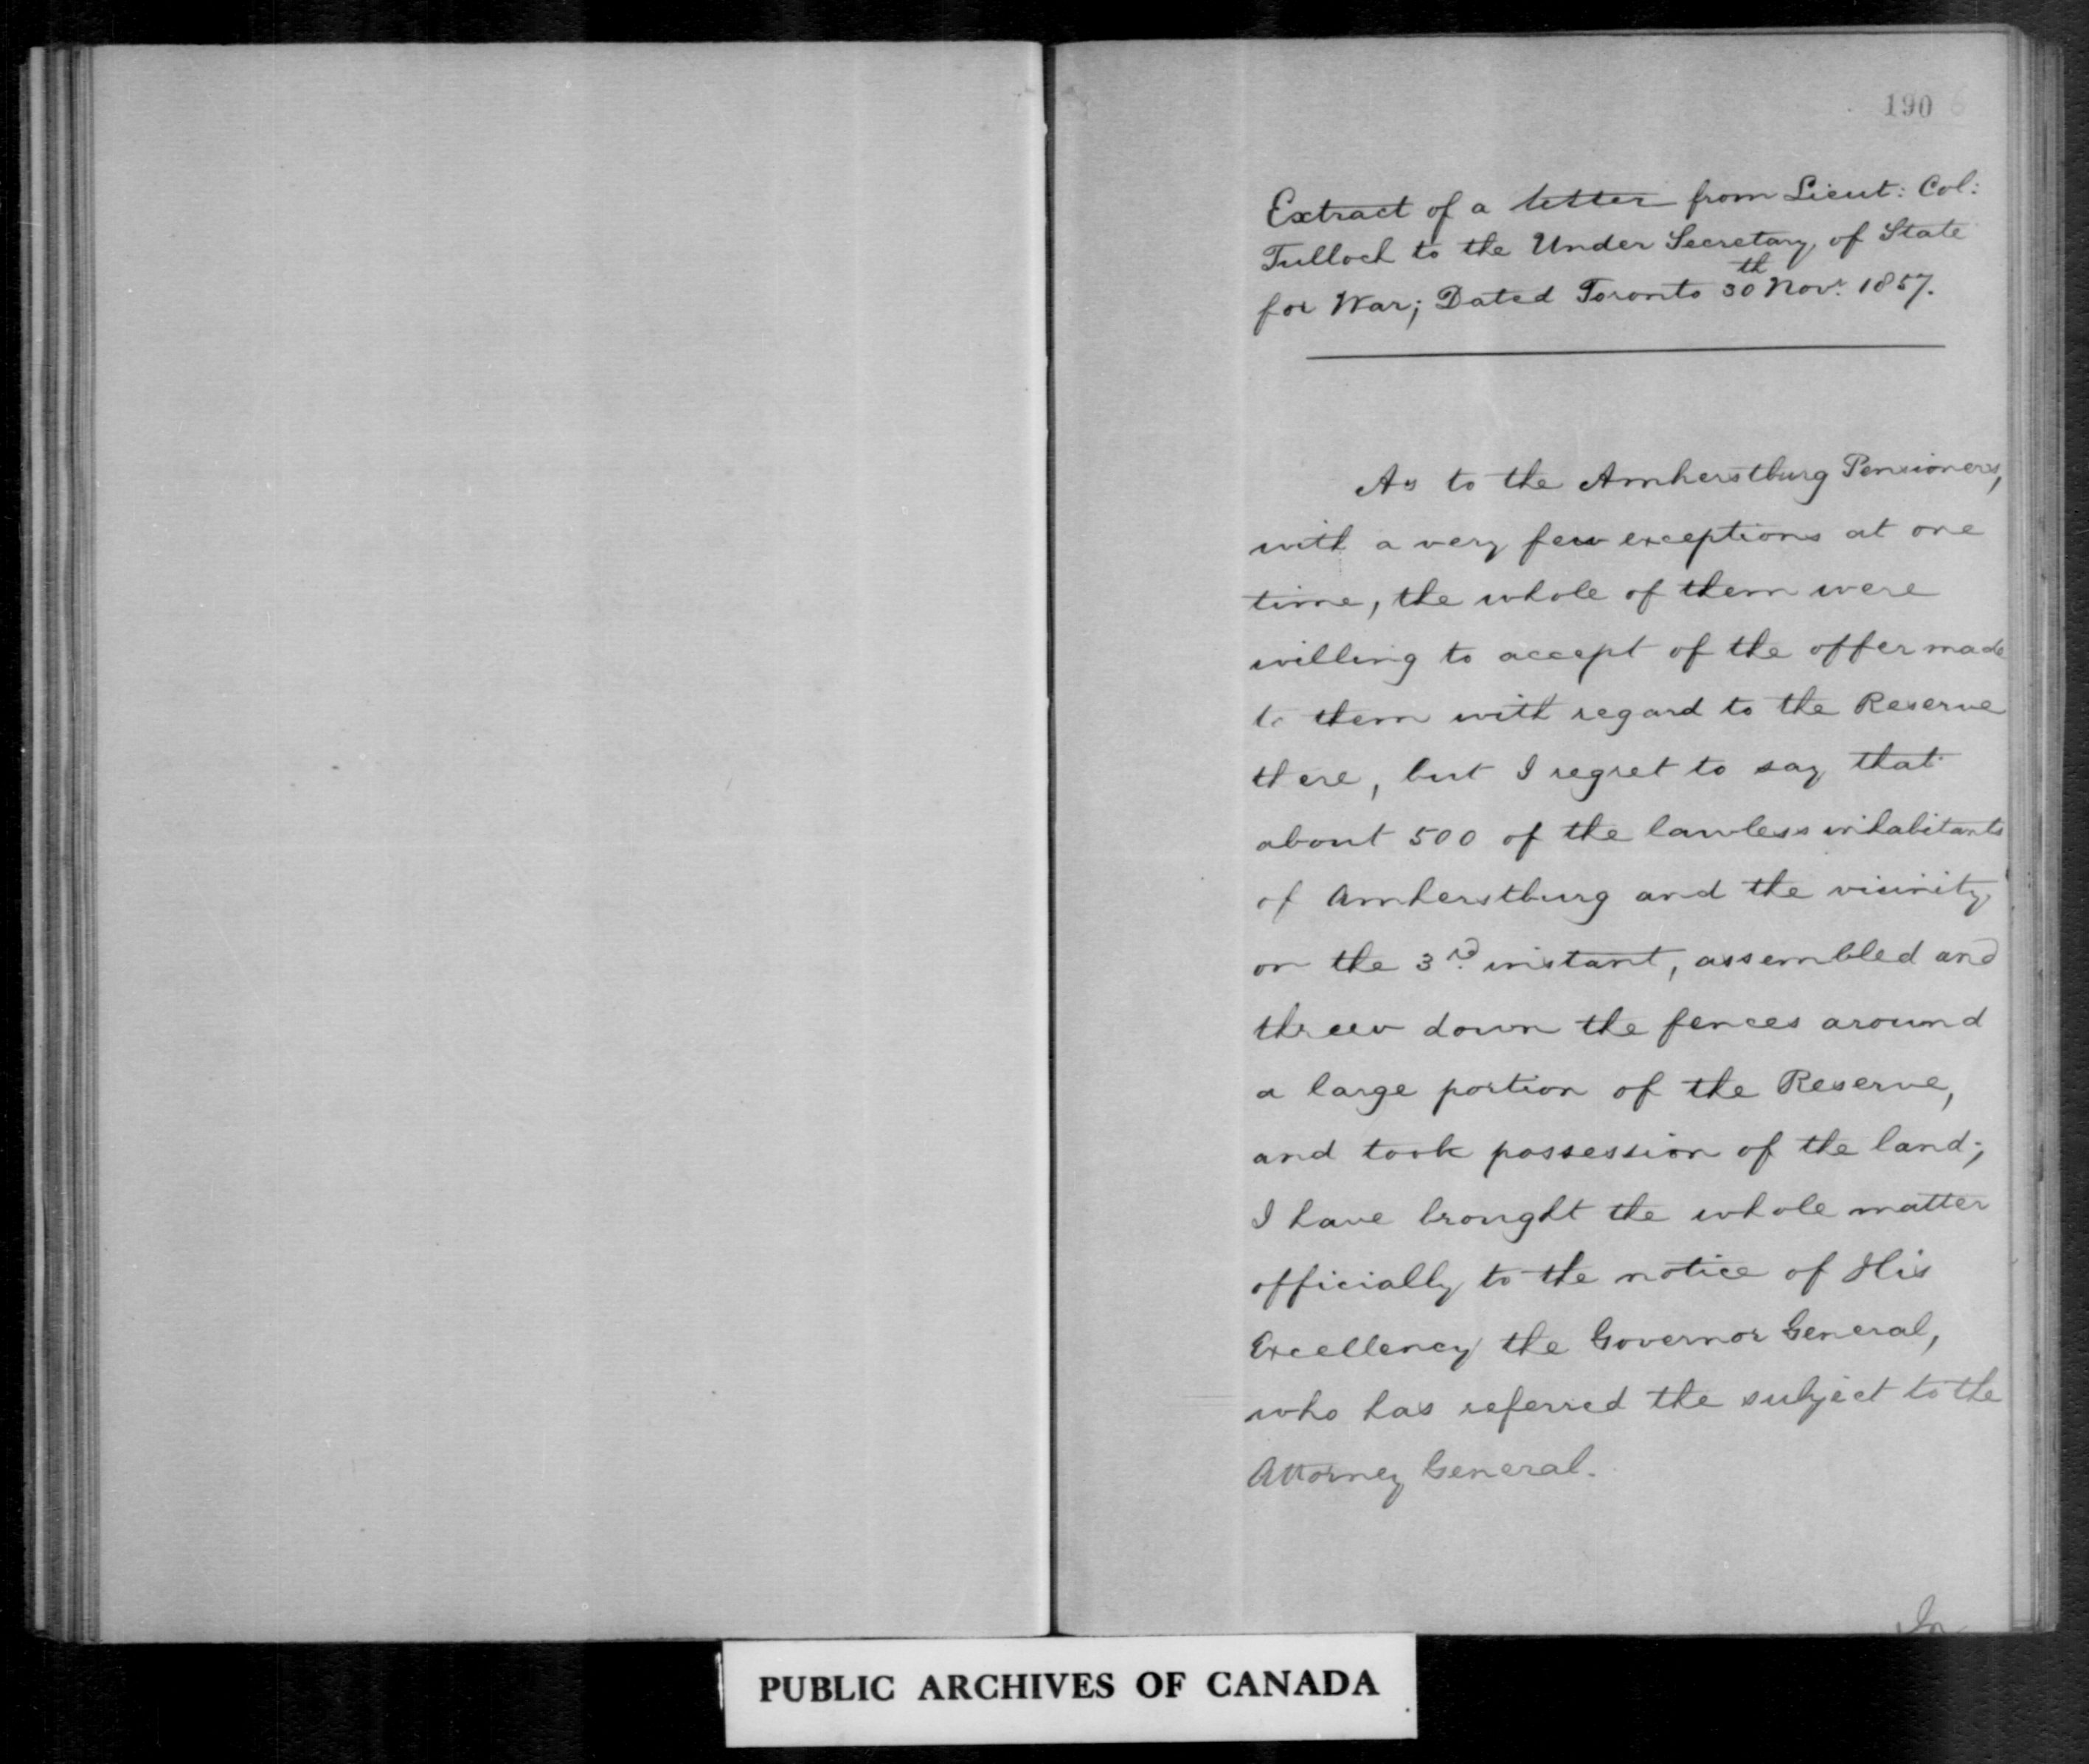 190
Extract of a letter from Lieut: Col:
Tulloch to the Under Secretary of State
for War; Dated Toronto 30th Novr. 1857.
As to the Amherstburg Pensioners,
with a very few exceptions at one
time, the whole of them were
willing to accept of the offer made
to them with regard to the Reserve
there, but I regret to say that
about 500 of the lawless inhabitants
of Amherstburg and the vicinity,
on the 3rd. instant, assembled and
threw down the fences around
a large portion of the Reserve,
and took possession of the land;
I have brought the whole matter
officially to the notice of His
Excellency the Governor General,
who has referred the subject to the
Attorney General.
In
PUBLIC ARCHIVES OF CANADA